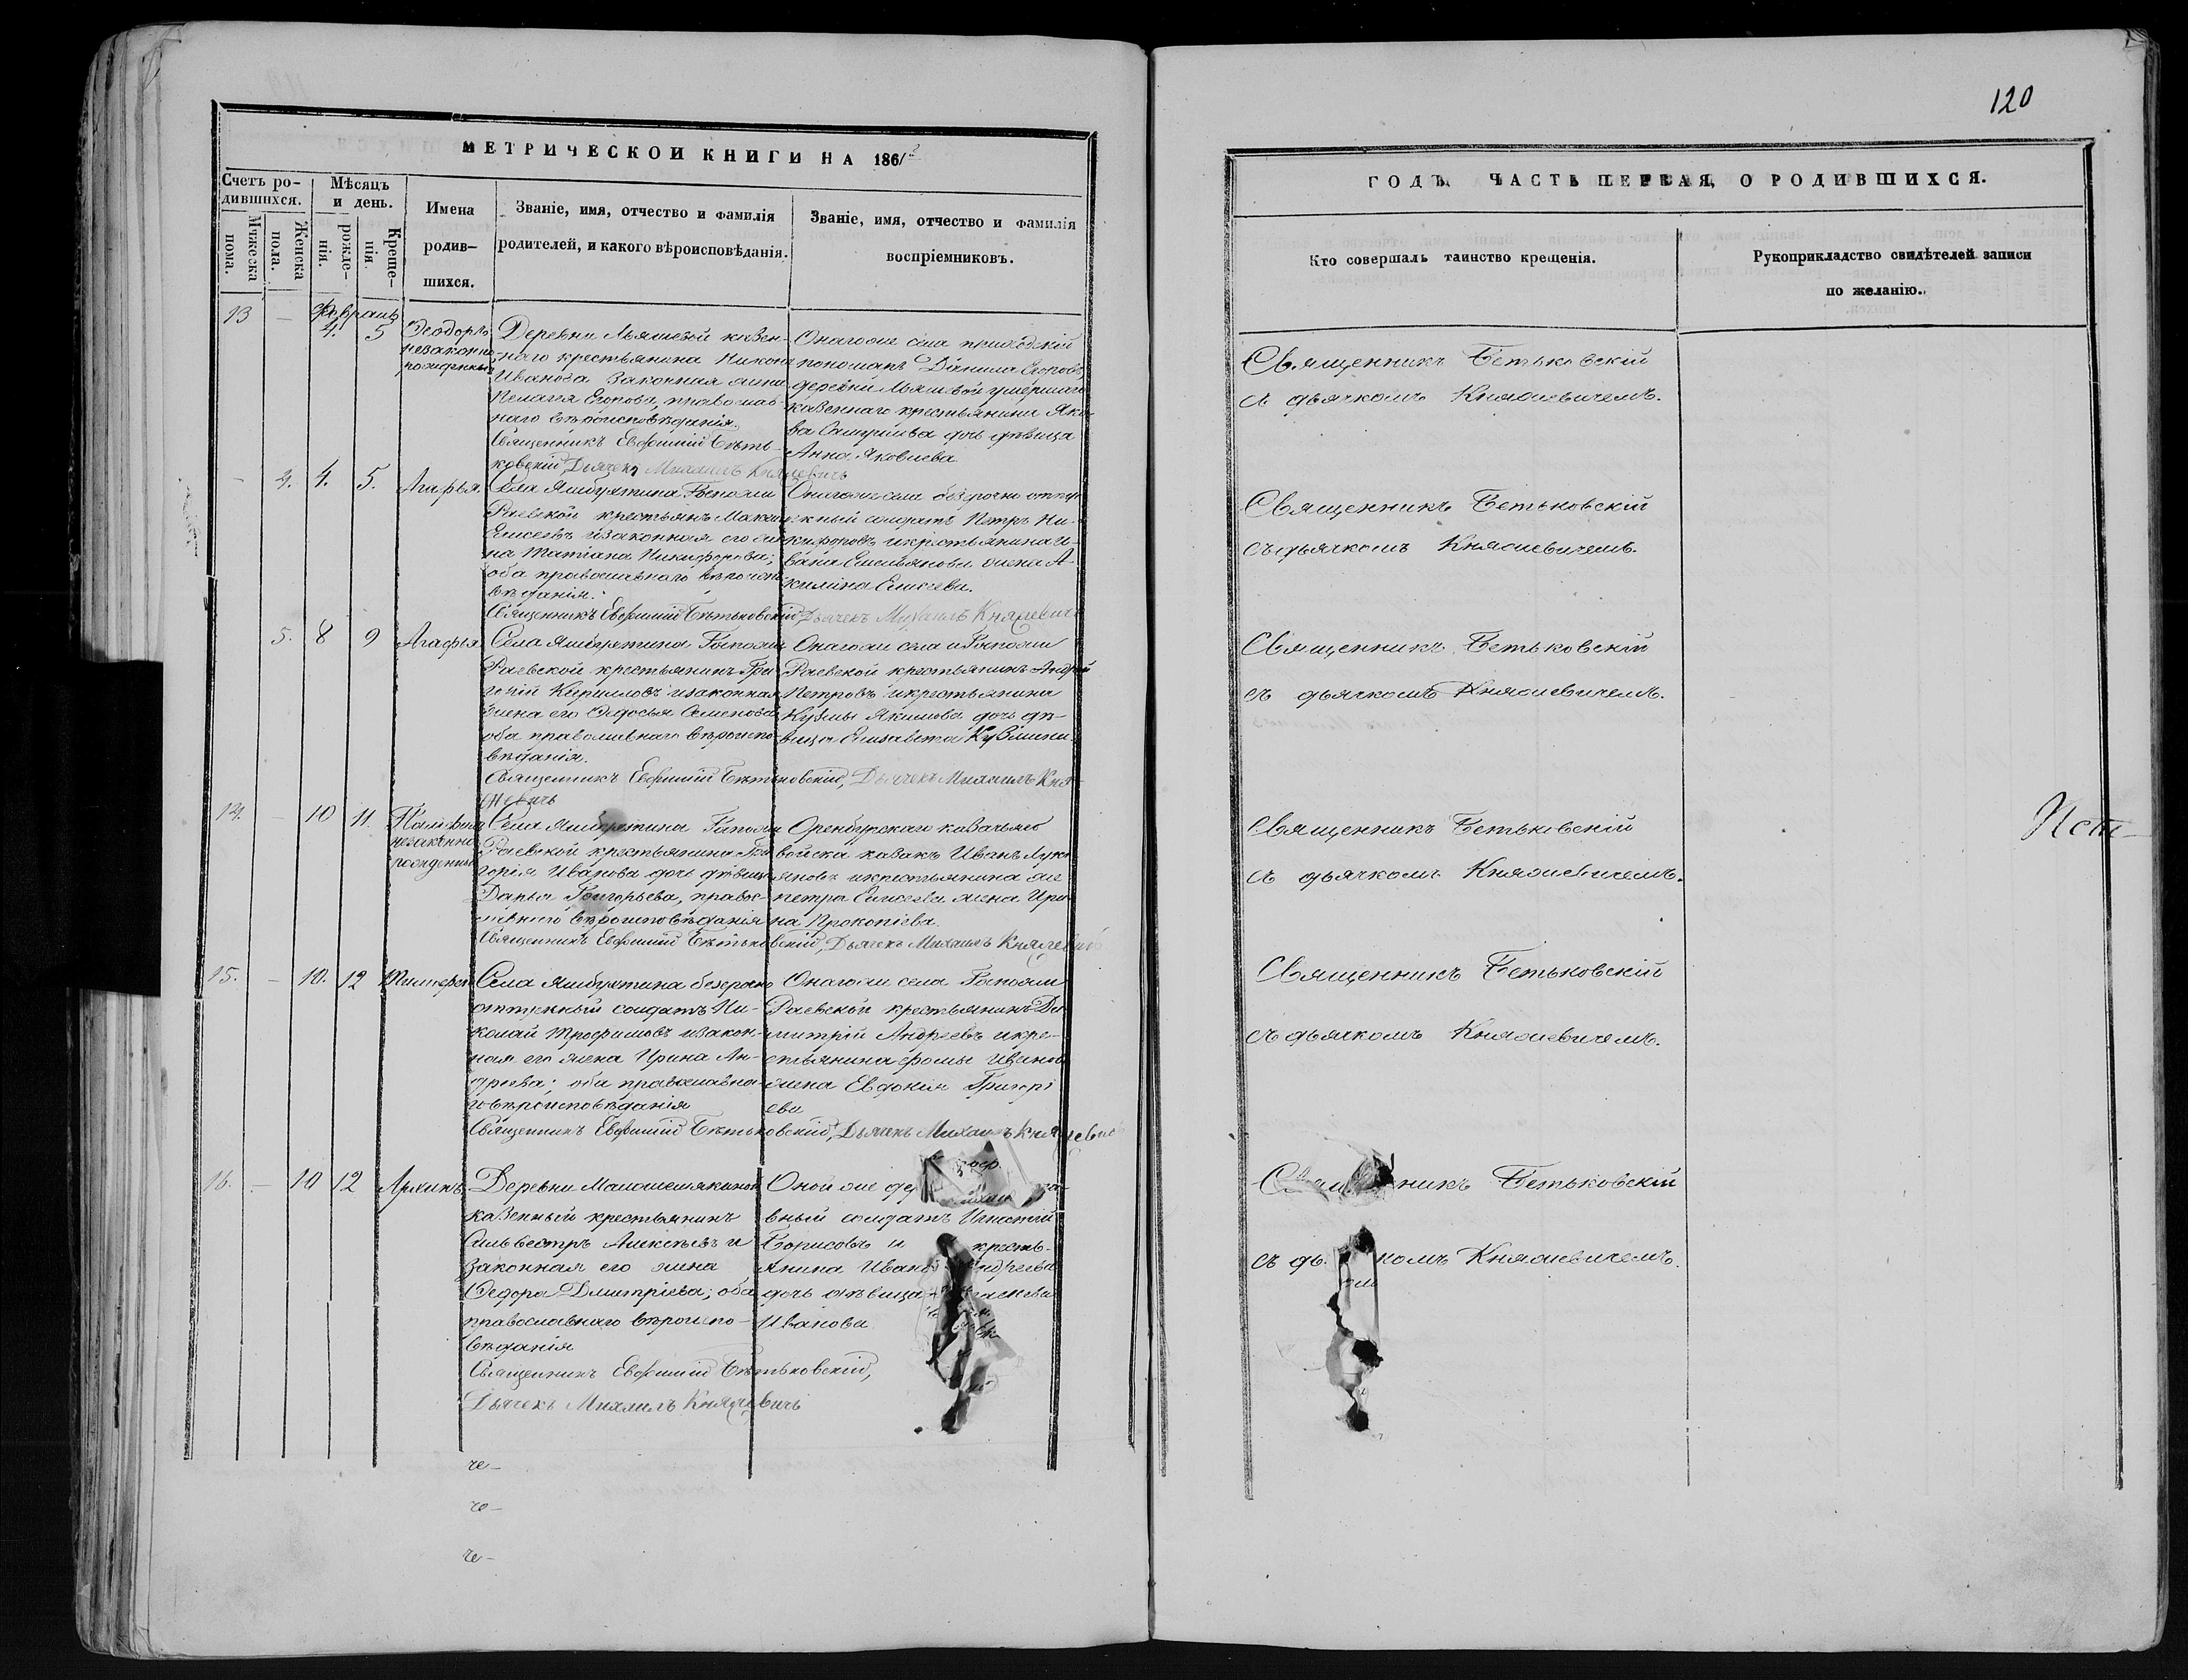 МЕТРИЧЕСКОИ КНИГИ НА 1862
Счетъ ро-
дившихся.
Мужеска
пола.
Женска
пола.
Мѣсяцъ
и день.
рожде-
нія.
Креще-
нія.
Имена
родив-
шихся.
Званіе, имя, отчество и фамилія
родителей, и какого вѣроисповѣданія.
Званіе, имя, отчество и фамилія
воспріемниковъ.
Февраль
13 — 4. 5 Ѳеодоръ
незаконно
рожденный
Деревни Мряшевой казен-
наго крестьянина Никона
Иванова законная жена
Пелагея Егорова, православ-
наго вѣроисповѣданія.
Священникъ Евфимій Бѣть-
ковскій, Дьячекъ Михаилъ Княжевичъ
Онагоже села приходскій
пономарь Данила Егоровъ
деревни умершаго
казеннаго крестьянина Яко-
ва дочь дѣвица
Анна Яковлева.
— 4. 4. 5. Агафья
Села Ямбухтина Госпожи
Раевской крестьянъ
Елисеевъ изаконная его же-
на Татіана Никифорова;
оба православнаго вѣроиспо-
вѣданія.
Священникъ Евфимій Бѣтьковскій, Дьячекъ Михаилъ Княжевичъ
Онагоже села безрочно отпу-
скный солдатъ Петръ Ни-
кифоровъ икрестьянина И-
вана Емельянова жена А-
килина Елисеева.
5. 8 9 Агафья
Села Ямбухтина Госпожи
Раевской крестьянинъ Гри
горій Кириловъ изаконная
жена его Ѳедосья Семенова
оба православнаго вѣроиспо-
вѣданія.
Священникъ Евфимій Бѣтьковскій, Дьячекъ Михаилъ Кня-
жевичъ
Онагоже села и Госпожи
Раевской крестьянинъ Андрей
Петровъ икрестьянина
Кузмы Якимова дочь дѣ-
вица Елизавета Кузмина.
14. — 10 11.
незаконно
рожденный
Села Ямбухтина Госпожи
Раевской крестьянина Гри
горія Иванова дочь дѣвица
Дарья Григорьева, правос-
лавнаго вѣроисповѣданія
Священникъ Евфимій Бѣтьковскій, Дьячекъ Михаилъ Княжевичъ
Оренбурскаго казачьяго
войска казакъ Иванъ Луки
яновъ икрестьянина же
петра Елисеева жена Ири
на Прокопіева.
15. — 10. 12 Тимофей
Села Ямбухтина безрочно
отпускный солдатъ Ни-
колай Трофимовъ изакон-
ная его жена Ирина Ан-
дреева; оба православна-
го вѣроисповѣданія
Священникъ Евфимій Бѣтьковскій, Дьячекъ Михаилъ Княжевичъ
Онагоже села Госпожи
Раевской крестьянинъ Ди
митрій Андреевъ икре-
стьянина Ѳомы Иванова
жена Евдокія Григорі
ева
16. — 10 12 Архипъ
Деревни Малошемякиной
казенный крестьянинъ
Сильвестръ Алексѣевъ и
законная его жена
Ѳедора Дмитріева; оба
православнаго вѣроиспо-
вѣданія
Священникъ Евфимій Бѣтьковскій,
Дьячекъ Михаилъ Княжевичъ
Оной же де
вный солдатъ Игнатій
Борисовъ и кресть-
янина Ивана Андреева
дочь дѣвица
Иванова
че-
че-
че-
120
ГОДЪ. ЧАСТЬ ПЕРВАЯ, О РОДИВШИХСЯ.
Кто совершалъ таинство крещенія.
Рукоприкладство свидѣтелей записи
по желанію.
Священникъ Бетьковскій
съ дьячкомъ Княжевичемъ.
Священникъ Бетьковскій
съ дьячкомъ Княжевичемъ.
Священникъ Бетьковскій
съ дьячкомъ Княжевичемъ.
Священникъ Бетьковскій
съ дьячкомъ Княжевичемъ.
Священникъ Бетьковскій
съ дьячкомъ Княжевичемъ.
никъ Бетьковскій
съ дь комъ Княжевичемъ.
Исп-